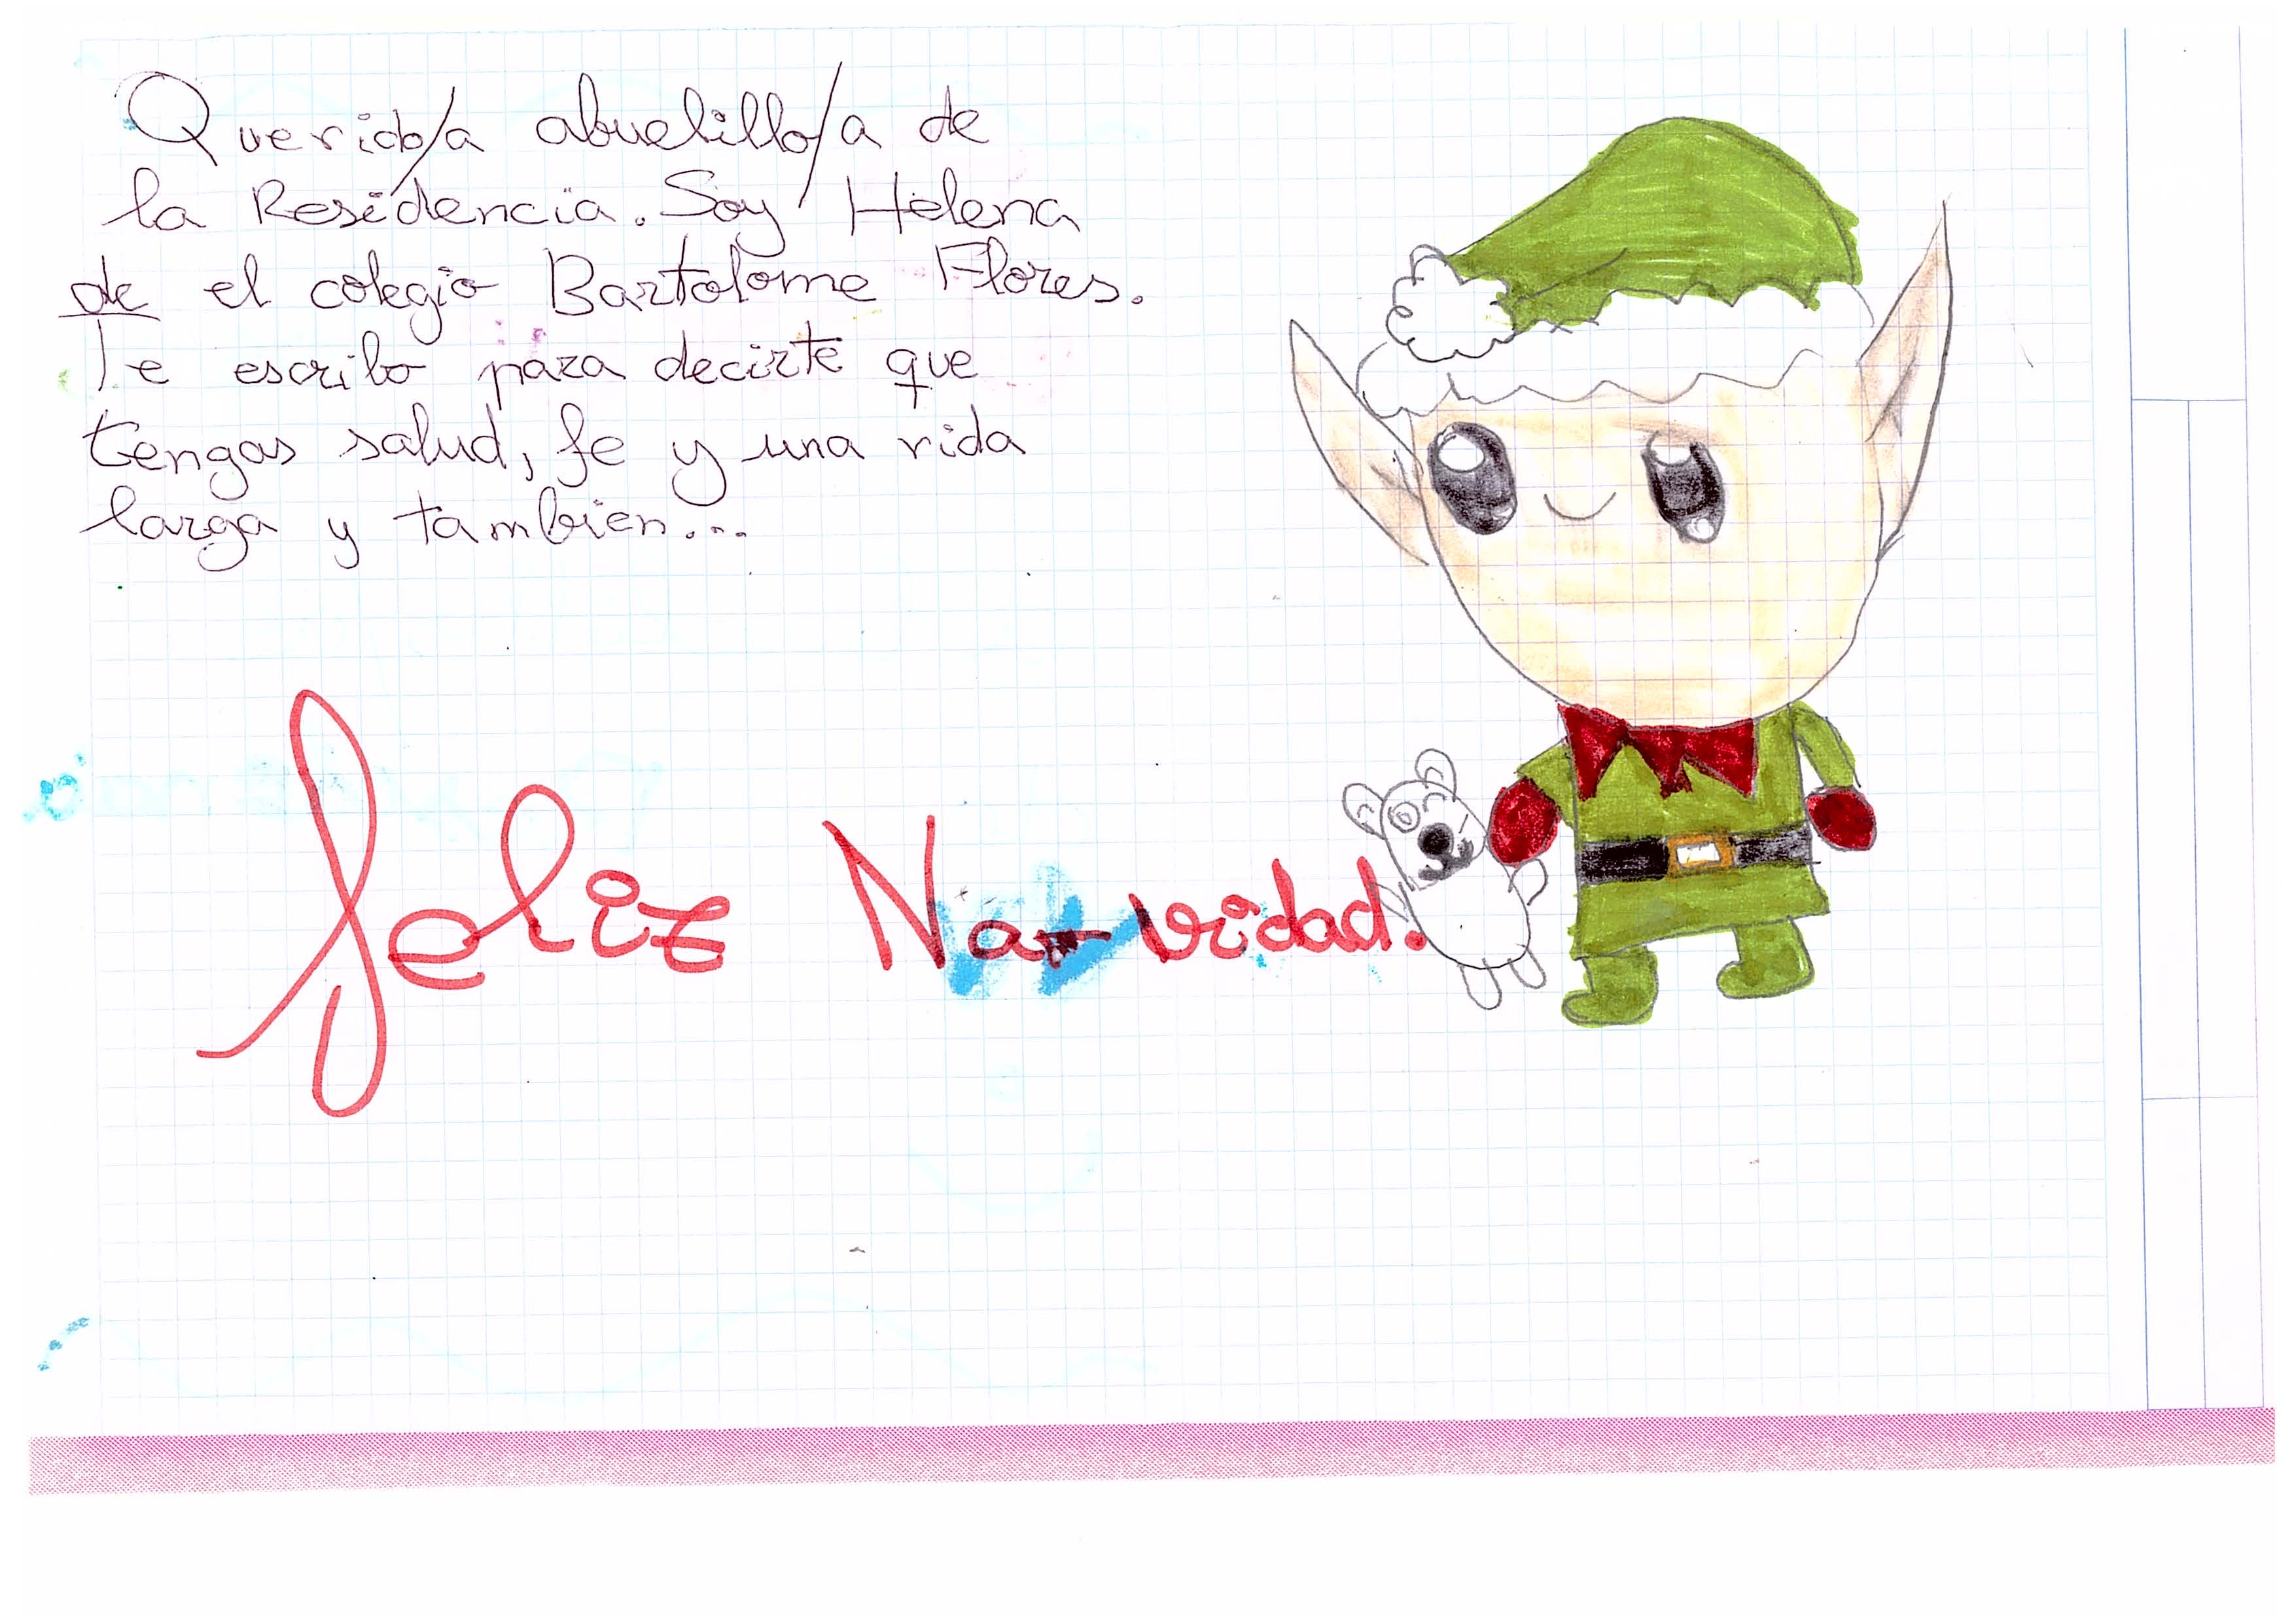 Querido/a abuelillo/a de
la Residencia. Soy Helena
de el colegio Bartolome Flores.
Te escribo para decirte que
tengas salud, fe y una vida
larga y tambien...
feliz Navidad.